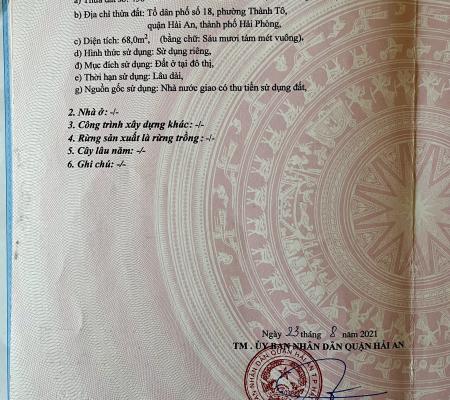 b) Địa chỉ thửa đất: Tổ dân phố số 18, phường Thành Tô,
quận Hải An, thành phố Hải Phòng,
c) Diện tích: 68,0m², (bằng chữ: Sáu mươi tám mét vuông),
d) Hình thức sử dụng: Sử dụng riêng,
đ) Mục đích sử dụng: Đất ở tại đô thị,
e) Thời hạn sử dụng: Lâu dài,
g) Nguồn gốc sử dụng: Nhà nước giao có thu tiền sử dụng đất,
2. Nhà ở: -/-
3. Công trình xây dựng khác: -/-
4. Rừng sản xuất là rừng trồng: -/-
5. Cây lâu năm: -/-
6. Ghi chú: -/-
Ngày 23 tháng 8 năm 2021
TM . ỦY BAN NHÂN DÂN QUẬN HẢI AN